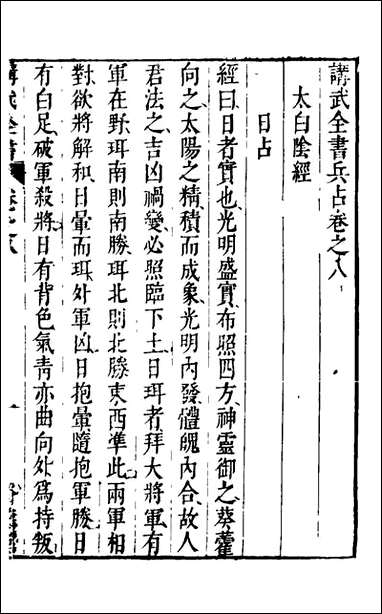 講武全書兵占卷之八
太白陰經
日占
經曰日者實也光明盛實布照四方神靈御之葵藿
向之太陽之精積而成象光明內發體魄內合故人
君法之吉凶禍變必照臨下土日珥者拜大將軍有
軍在野珥南則南勝珥北則北勝東西準此兩軍相
對欲將解和日暈而珥外軍凶日抱暈隨抱軍勝日
有白足破軍殺將日有背色氣青赤曲向外爲持叛
講武全書 卷之八 一